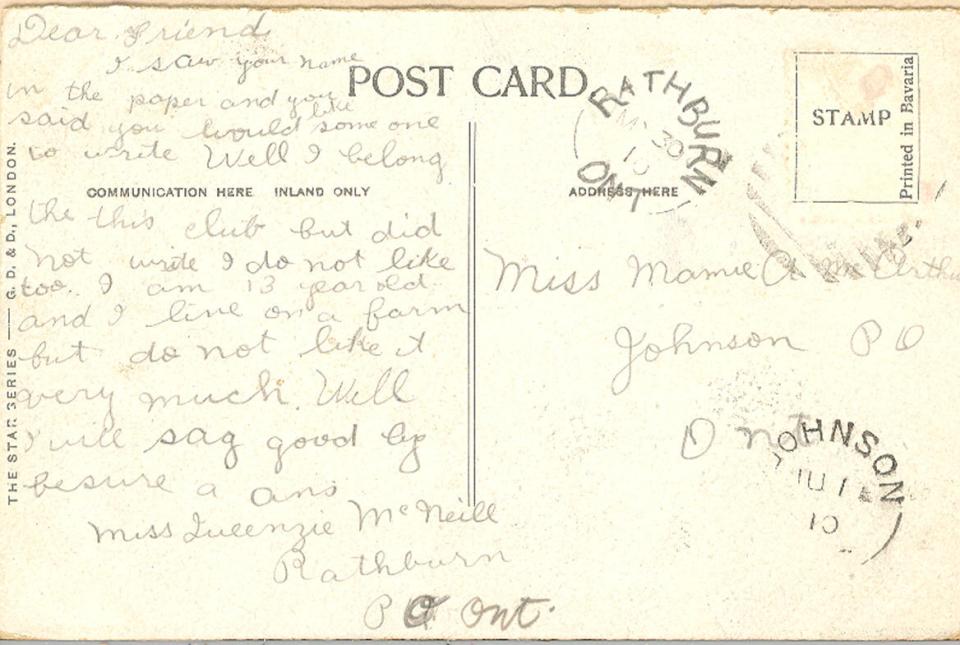 Dear Friend
I saw your name
in the paper and you
said you would like some one
to write Well I belong
COMMUNICATION HERE INLAND ONLY
the this club but did
not write I do not like
too. I am 13 year old
and I live on a farm
but do not like it
very much. Well
I will say good by
besure a ans
Miss McNeill
Rathburn
P O Ont.
THE STAR SERIES — G. D. & D., LONDON.
POST CARD
RATHBURN
30
10
ONT
STAMP
Printed in Bavaria
ADDRESS HERE
Miss Mamie A McArthu
Johnson P O
Ont
JOHNSON
JU 1
10